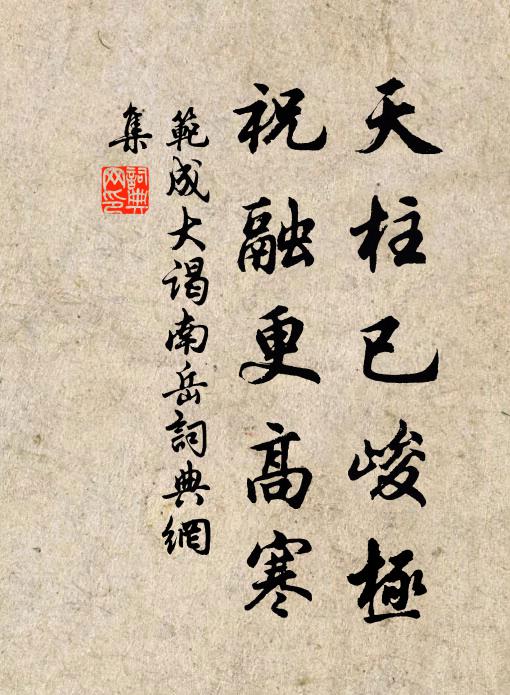 天柱已峻極
祝融更高寒
範成大謁南岳詞典網
集
詞典
网印